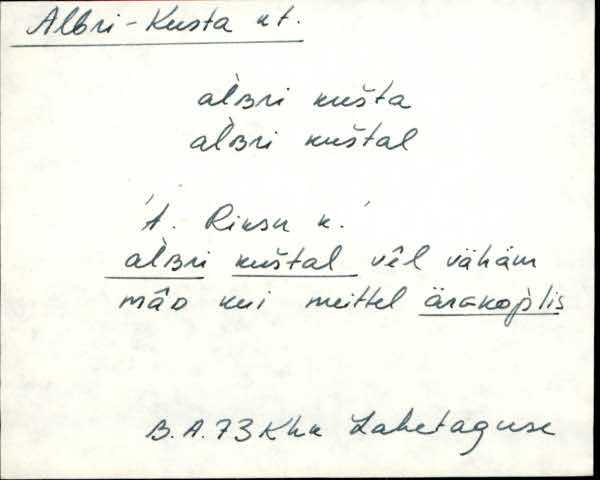 Albri-Kusta kt.
àlʙri kušta
àlʙri kuštal
'A. Rinsu k.'
àlʙri kuštal vêl vähäm
mâᴅ kui meittel ärakop̀lis
B.A.73 Khk Lahetaguse